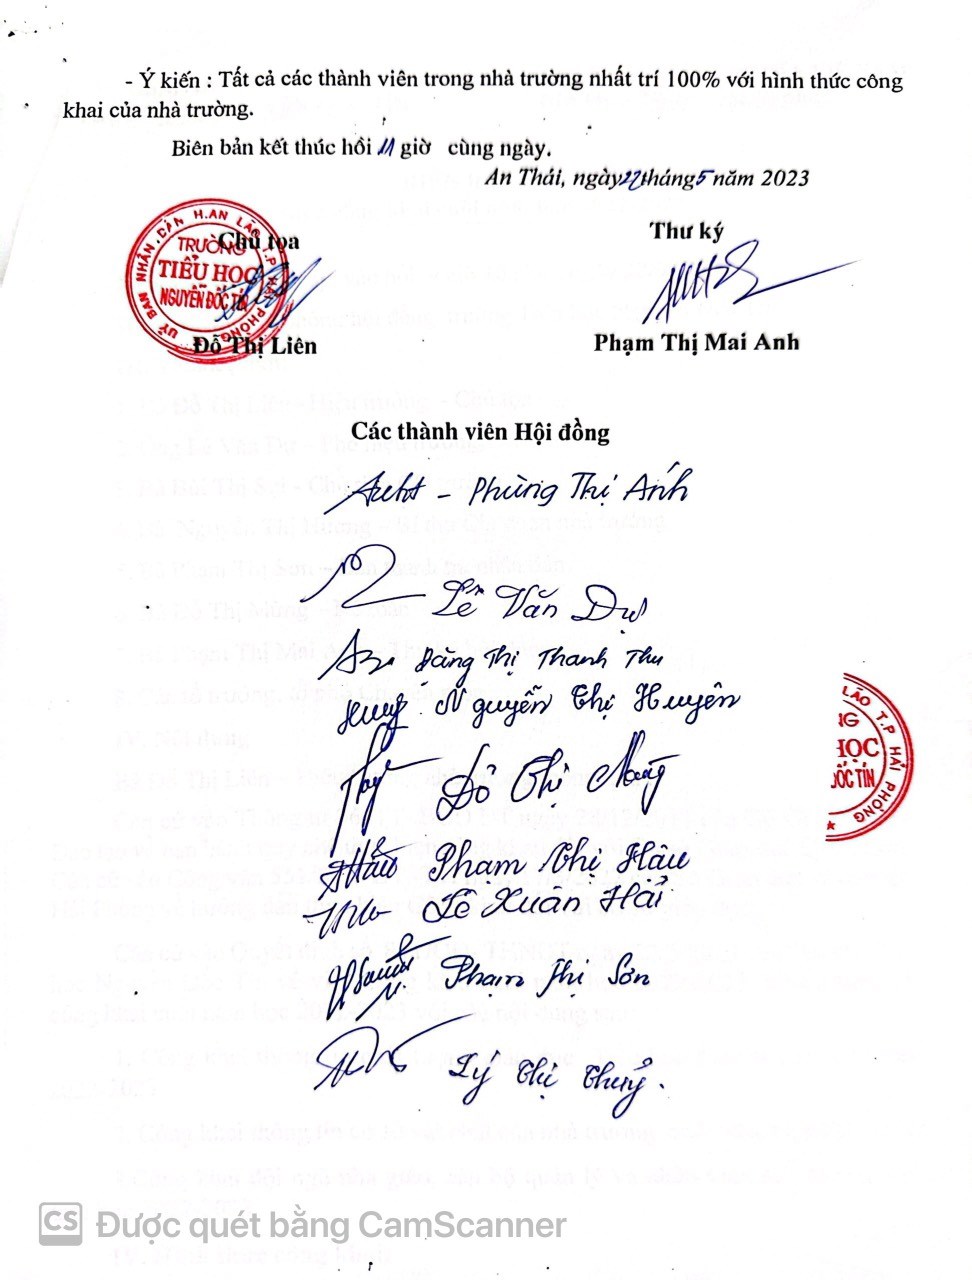 - Ý kiến : Tất cả các thành viên trong nhà trường nhất trí 100% với hình thức công
khai của nhà trường.
Biên bản kết thúc hồi 11 giờ cùng ngày.
An Thái, ngày 27 tháng 5 năm 2023
Chủ tọa
Thư ký
UỶ BAN NHÂN DÂN H.AN LÃO T.P HẢI PHÒNG
TRƯỜNG
TIỂU HỌC
NGUYỄN ĐỐC TÍN
Đỗ Thị Liên
Phạm Thị Mai Anh
Các thành viên Hội đồng
Phùng Thị Ánh
Lê Văn Dự
Đặng Thị Thanh Thu
Nguyễn Thị Huyên
Đỗ Thị
Phạm Thị Hậu
Lê Xuân Hải
Phạm Thị Sơn
Lý Thị
LÃO T.P HẢI PHÒNG
NG
HỌC
ĐỐC TÍN
CS Được quét bằng CamScanner